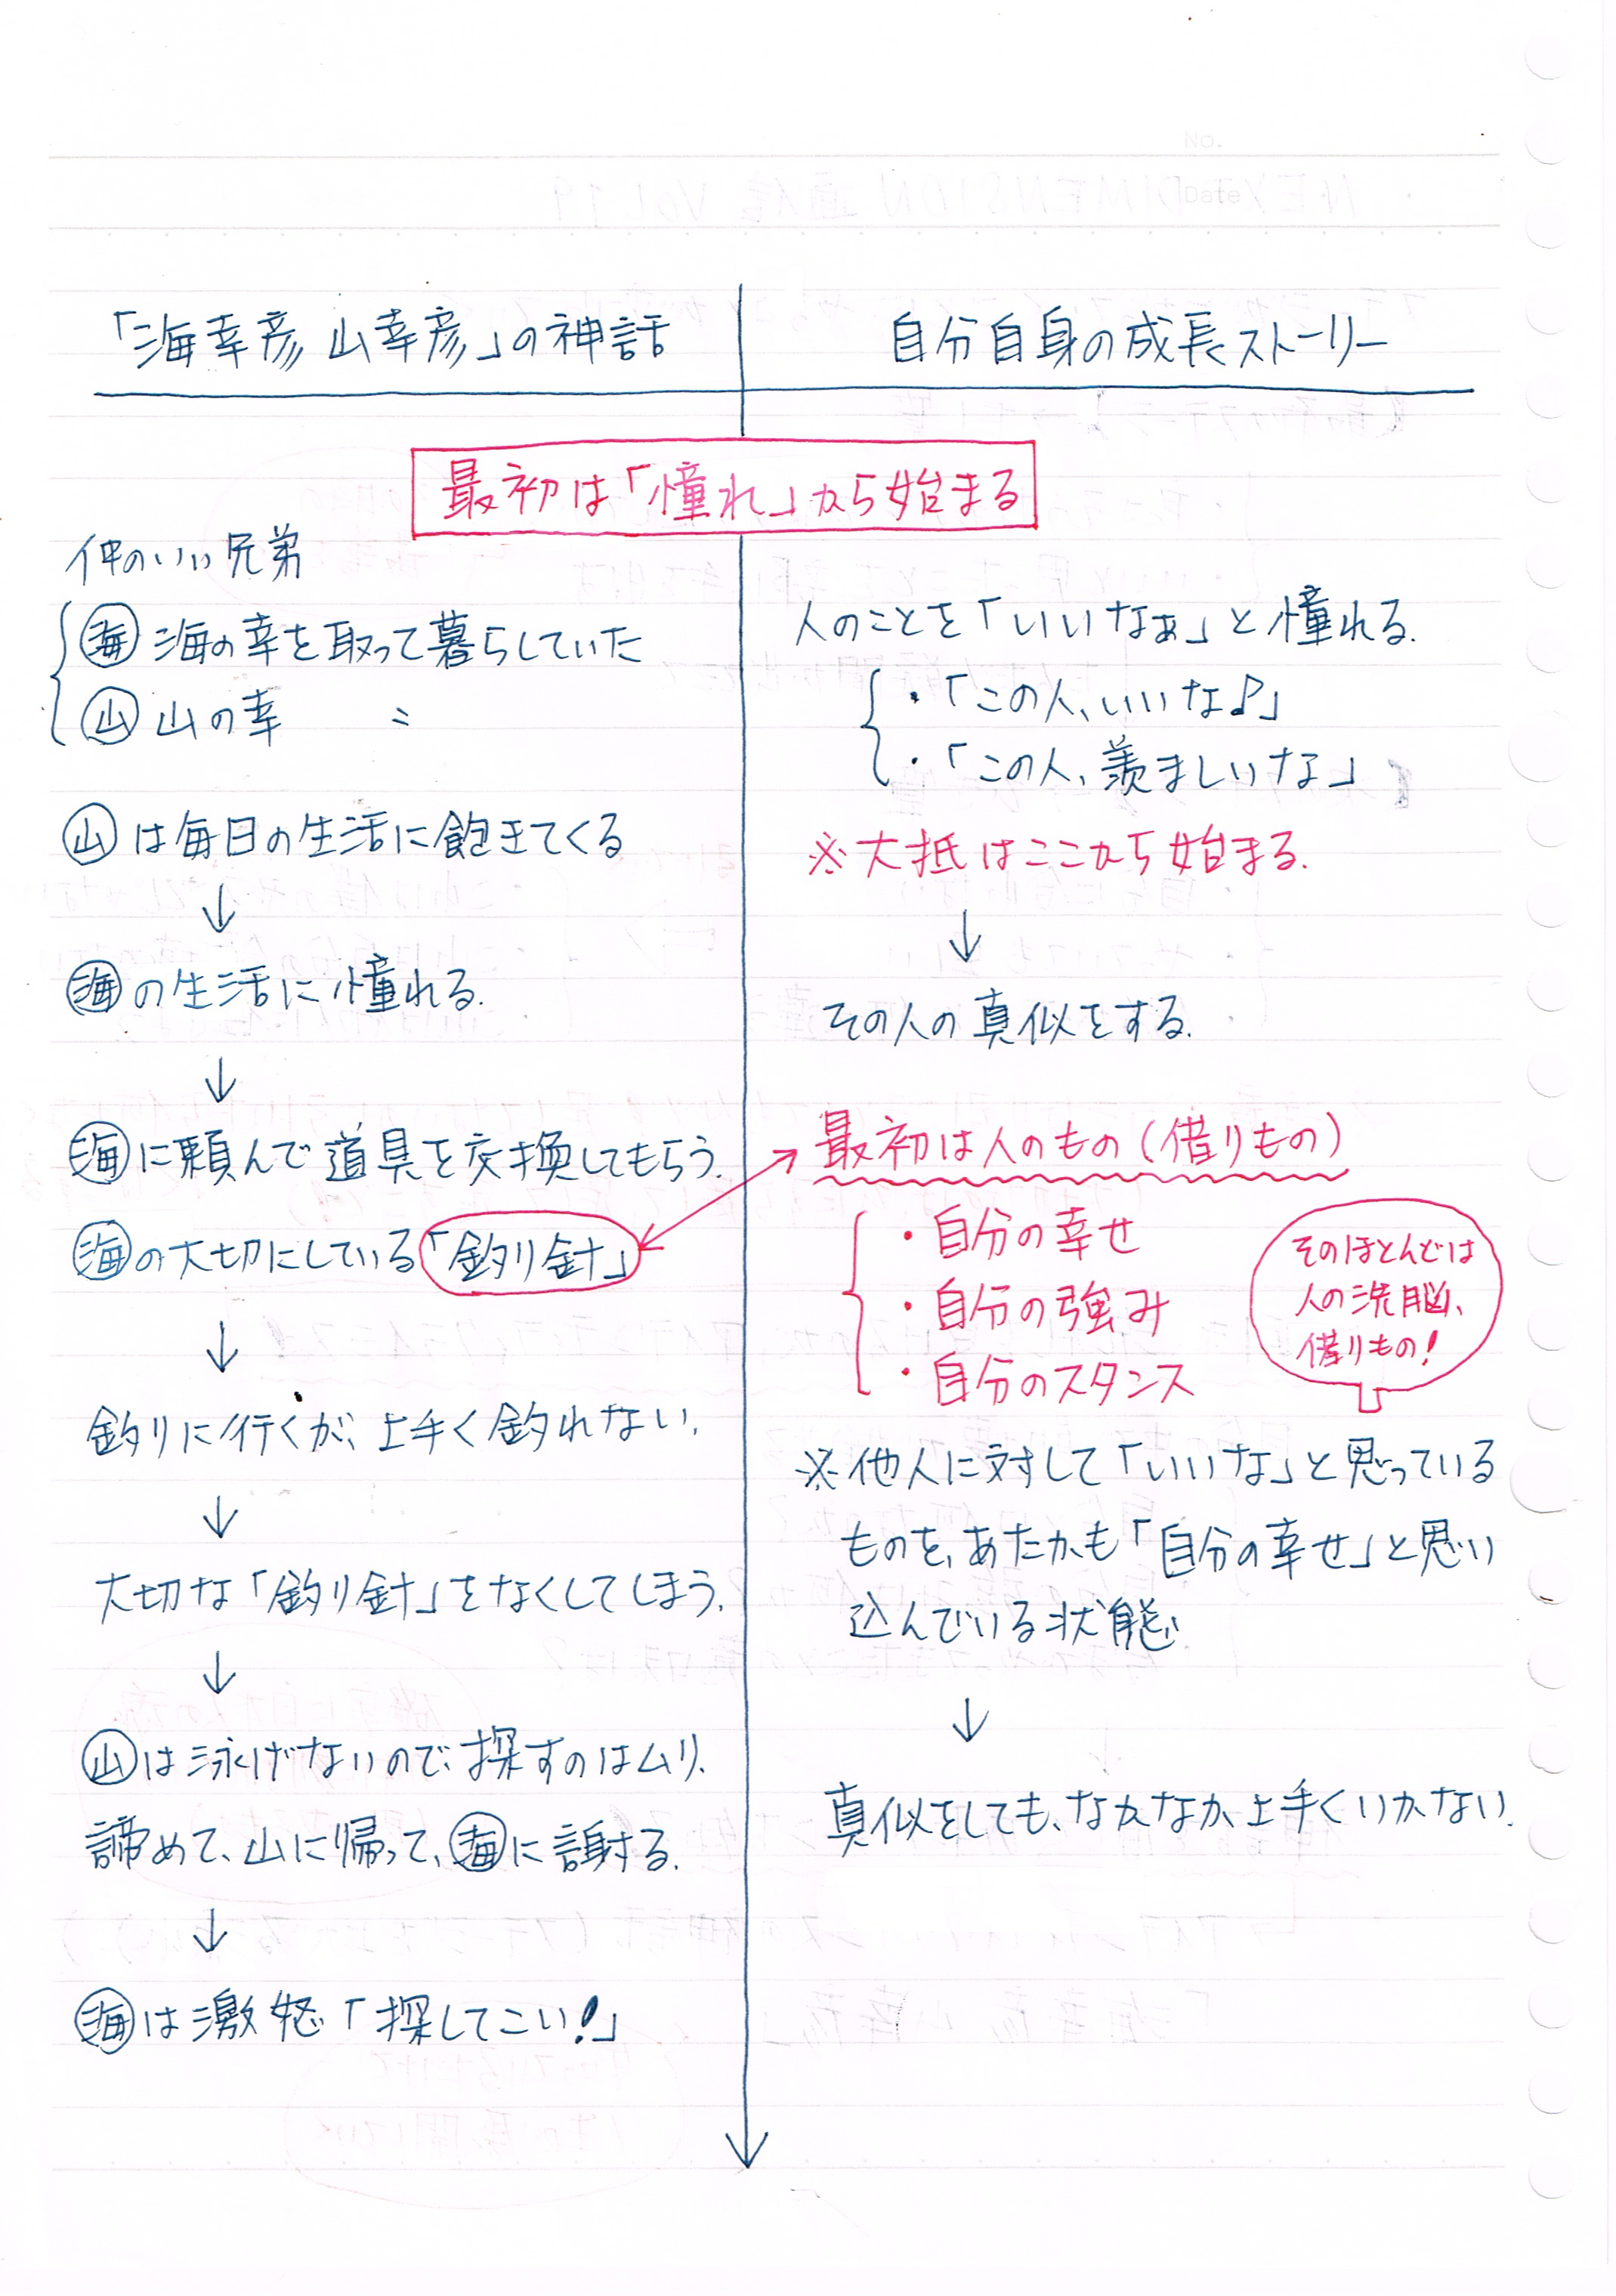 No.
Date
「海幸彦 山幸彦」の神話
自分自身の成長ストーリー
最初は「憧れ」から始まる
仲のいい兄弟
海 海の幸を取って暮らしていた
山 山の幸 〃
山は毎日の生活に飽きてくる
↓
海の生活に憧れる.
↓
海に頼んで道具を交換してもらう.
海の大切にしている「釣り針」
↓
釣りに行くが、上手く釣れない.
↓
大切な「釣り針」をなくしてしまう.
↓
山は泳げないので、探すのはムリ.
諦めて、山に帰って、海に謝する.
↓
海は激怒「探してこい!」
人のことを「いいなぁ」と憧れる.
・「この人、いいな♪」
・「この人、羨ましいな」
※大抵はここから始まる.
↓
その人の真似をする.
最初は人のもの(借りもの)
・自分の幸せ
・自分の強み
・自分のスタンス
そのほとんどは
人の洗脳、
借りもの!
※他人に対して「いいな」と思っている
ものを、あたかも「自分の幸せ」と思い
込んでいる状態
↓
真似をしても、なかなか上手くいかない.